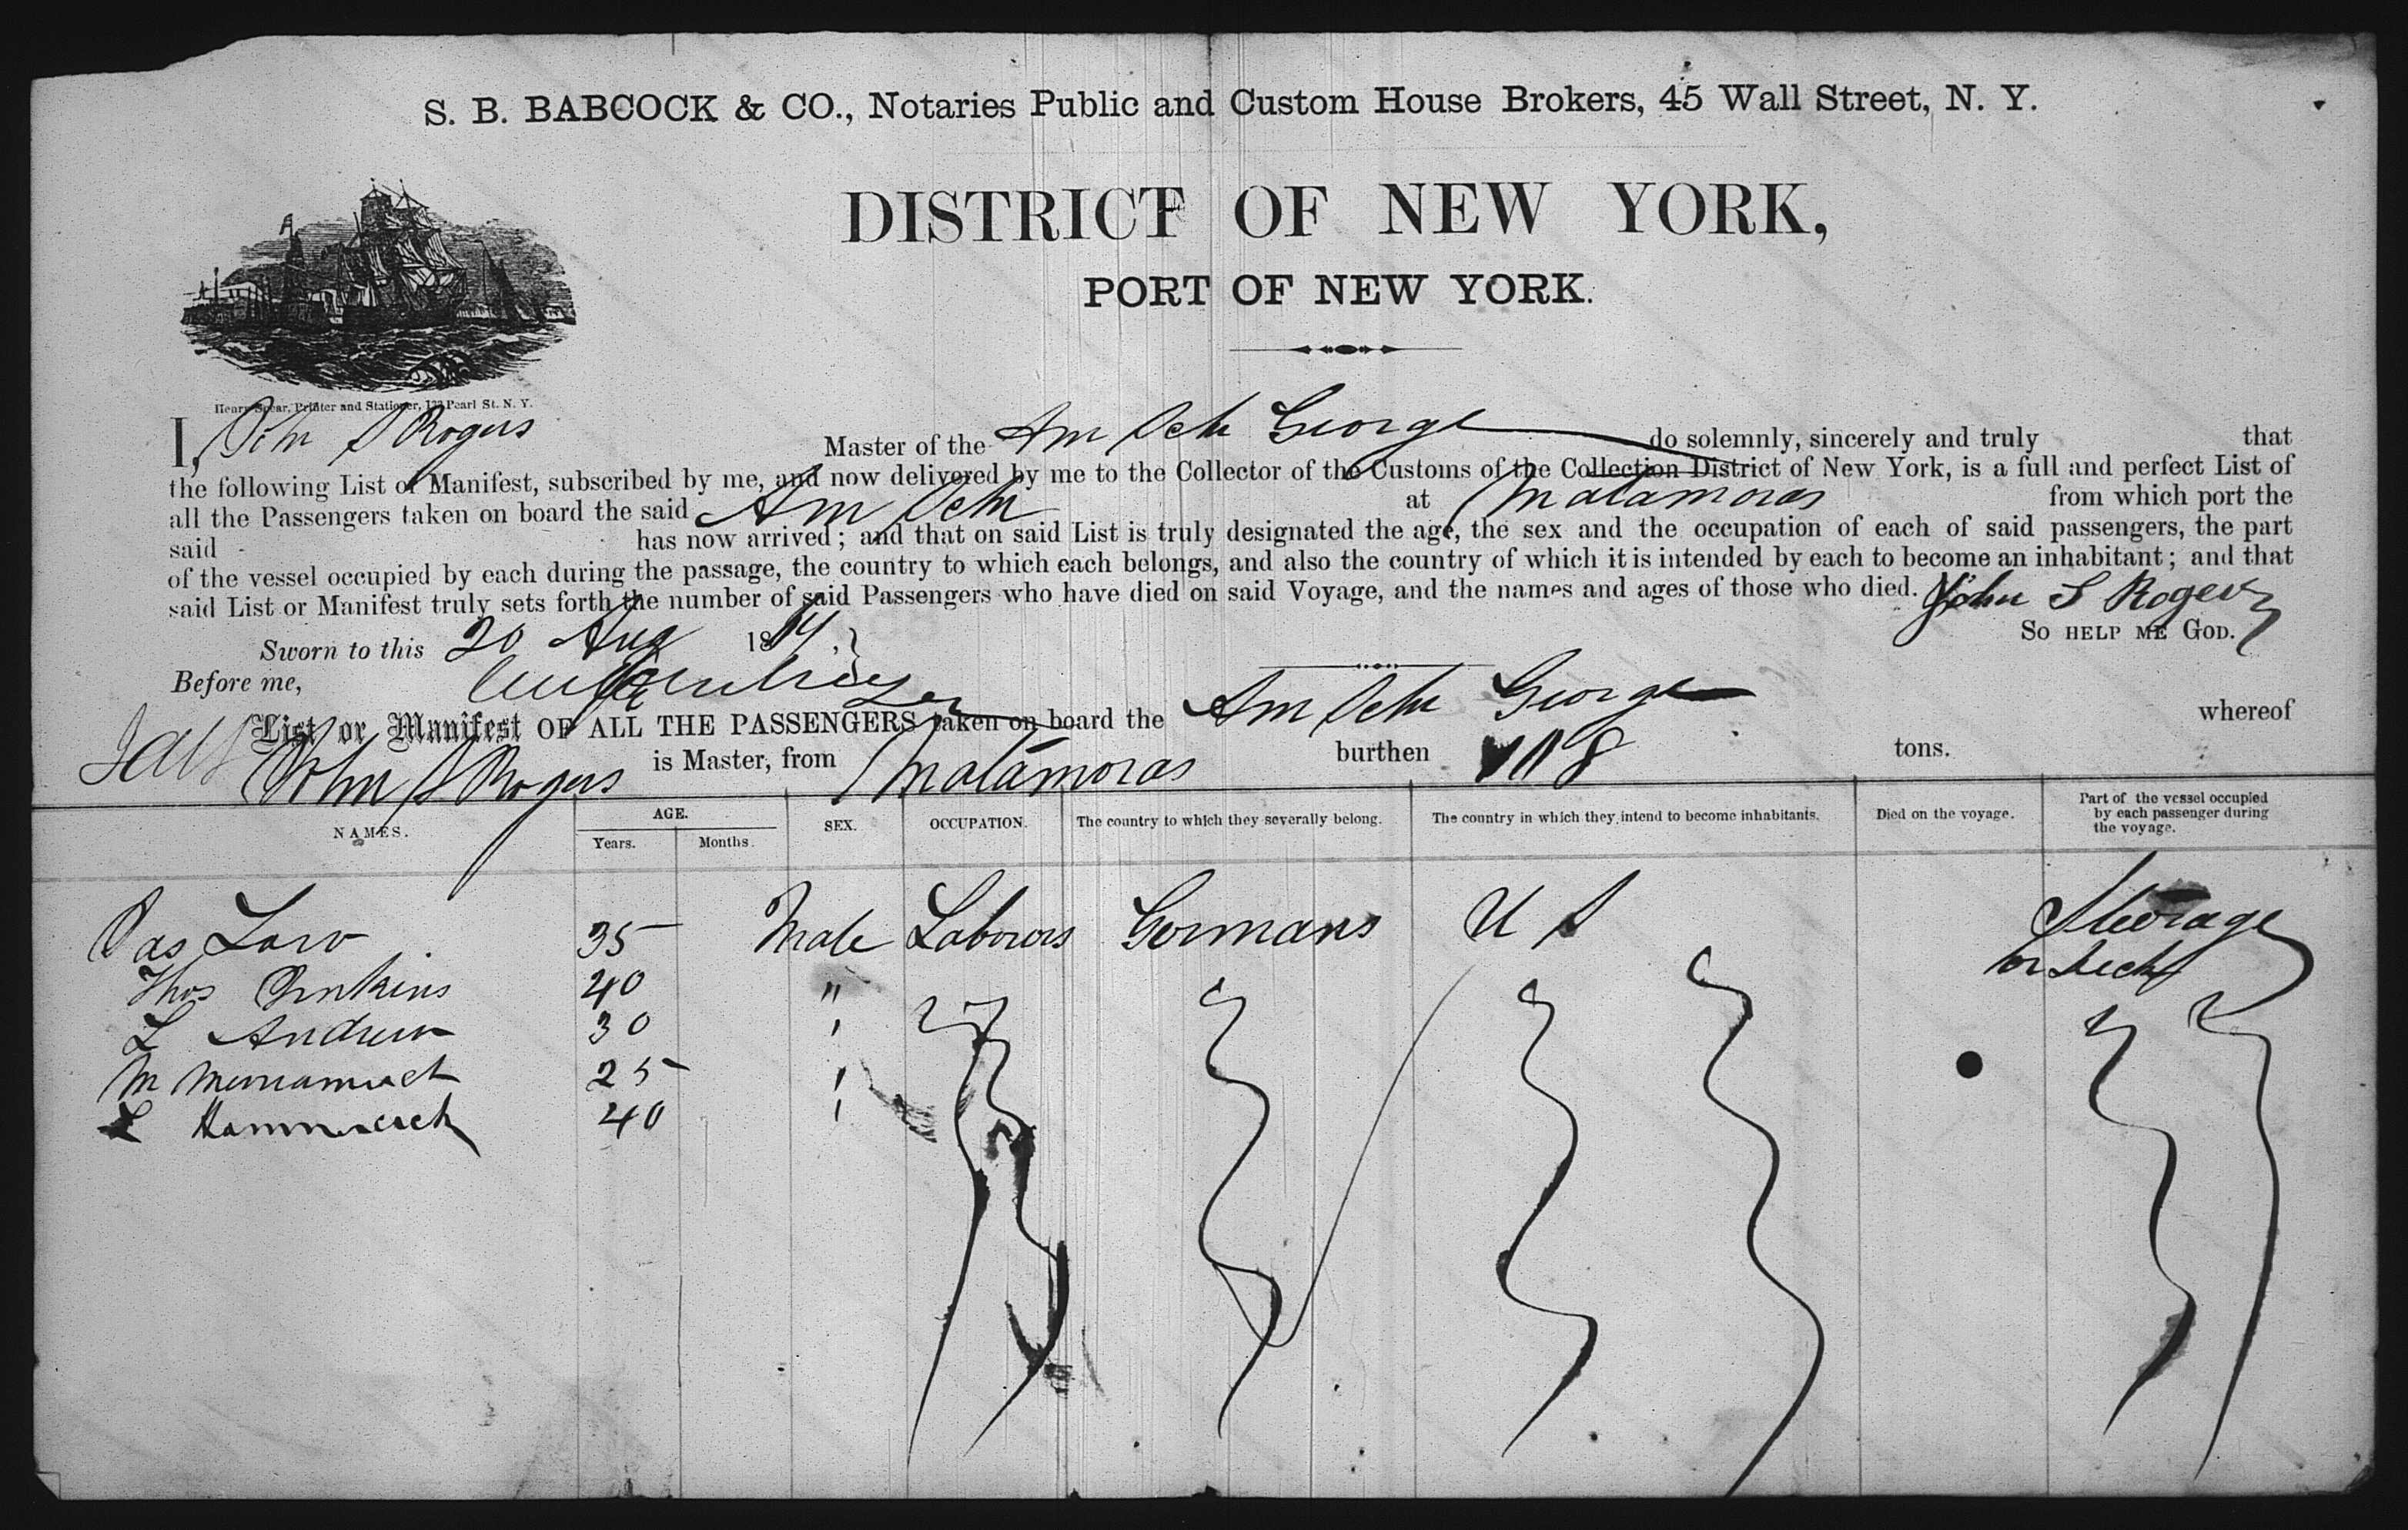 S. B. BABCOCK & CO., Notaries Public and Custom House Brokers, 45 Wall Street, N. Y.
DISTRICT OF NEW YORK,
PORT OF NEW YORK.
Henry Spear, Printer and Stationer, 133 Pearl St. N. Y.
I, John S Rogers Master of the Am Sch George do solemnly, sincerely and truly that
the following List or Manifest, subscribed by me, and now delivered by me to the Collector of the Customs of the Collection District of New York, is a full and perfect List of
all the Passengers taken on board the said Am Sch at Matamoras from which port the
said has now arrived; and that on said List is truly designated the age, the sex and the occupation of each of said passengers, the part
of the vessel occupied by each during the passage, the country to which each belongs, and also the country of which it is intended by each to become an inhabitant; and that
said List or Manifest truly sets forth the number of said Passengers who have died on said Voyage, and the names and ages of those who died. John S Rogers
Sworn to this 20 Aug 1864 So HELP ME GOD.
Before me,
List or Manifest OF ALL THE PASSENGERS taken on board the Am Sch George whereof
John S Rogers is Master, from Matamoras burthen 118 tons.
NAMES. AGE. Years. Months. SEX. OCCUPATION. The country to which they severally belong. The country in which they intend to become inhabitants. Died on the voyage. Part of the vessel occupied by each passenger during the voyage.
Jas Law 35 Male Laborers Germans U S Steerage
Thos Jenkins 40 " or Deck
L Andrew 30 '
M 25 '
L 40 '